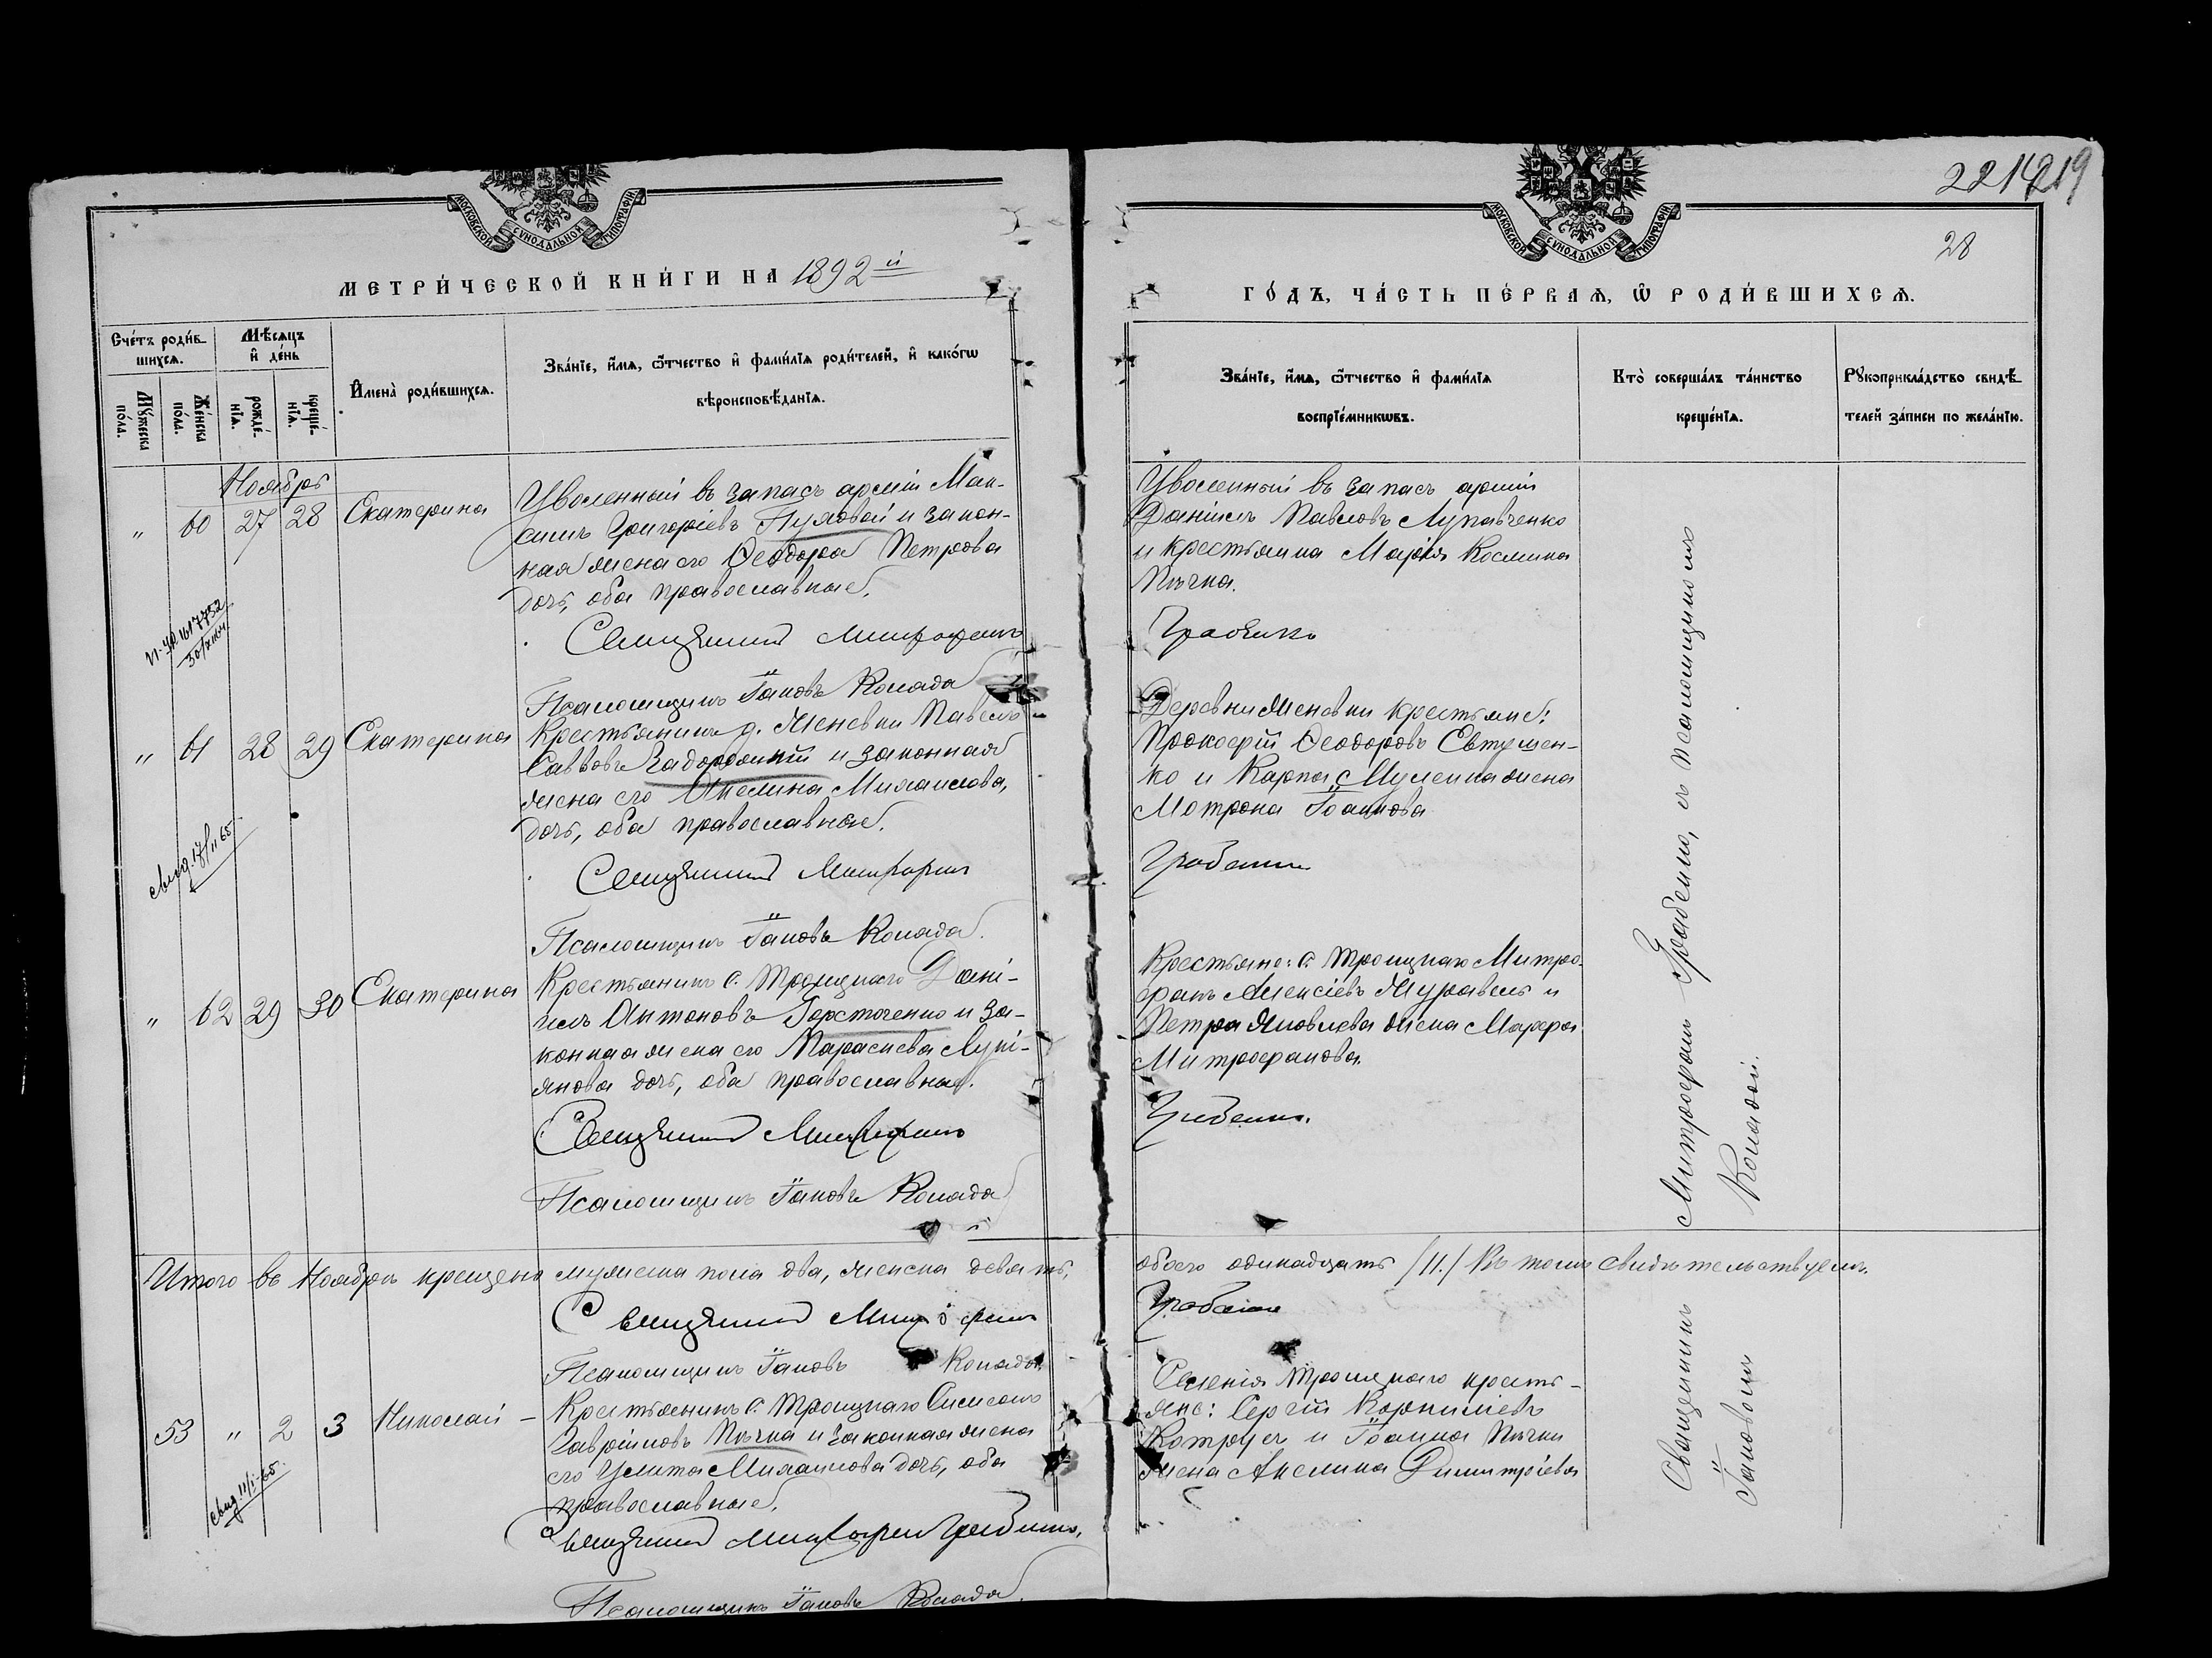 МОСКОВСКОЙ СѴНОДАЛЬНОЙ ТИПОГРАФІИ
МЕТРИ́ЧЕСКОЙ КНИ́ГИ НА 1892й
Сче́тъ роди́в-
шихся.
Мѣсяцъ
и де́нь
Му́жеска
по́ла.
Же́нска
по́ла.
рожде́-
нїя.
креще́-
нїя.
Имена̀ роди́вшихся.
Зва́нїе, и́мя, ѻ҆́тчество и фами́лїя роди́телей, и како́гѡ
вѣроисповѣ́данїя.
Ноябрь
" 60 27 28 Екатерина
Уволенный въ запасъ арміи Мак-
симъ Григоріевъ Пуловой и закон-
ная жена его Ѳеодора Петрова
дочь, оба православные.
Священникъ Митрофанъ
Псаломщикъ Іаковъ Колада
" 61 28 29 Екатерина
Крестьянинъ д. Женевки Павелъ
Саввовъ Задорожній и законная
жена его Акелина Михаилова,
дочь, оба православные.
свид. 17/II 65.
Священникъ Митрофанъ
Псаломщикъ Іаковъ Колада.
" 62 29 30 Екатерина
Крестьянинъ с. Троицкаго Дані-
илъ Антоновъ Горсточенко и за-
конная жена его Параскева Лукі-
янова дочь, оба православные.
Священникъ Митрофанъ
Псаломщикъ Іаковъ Колада
Итого въ Ноябрѣ крещено мужеска пола два, женска девять,
Священникъ Митрофанъ
Псаломщикъ Іаковъ Колада
53 " 2 3 Николай –
Крестьянинъ с. Троицкаго Сисой
Гавріиловъ Пѣчка и законная жена
его Улита Михаилова дочь, оба
православные.
свид 11/I-65.
Священникъ Митрофанъ Грабенко.
Псаломщикъ Іаковъ Колада.
МОСКОВСКОЙ СѴНОДАЛЬНОЙ ТИПОГРАФІИ
219
28
ГО́ДЪ, ЧА́СТЬ ПЕ́РВАЯ, Ѡ҆ РОДИ́ВШИХСЯ.
Зва́нїе, и́мя, ѻ҆́тчество и фами́лїя
воспрїе́мникѡвъ.
Кто̀ соверша́лъ та́инство
креще́нїя.
Рꙋкоприкла́дство свидѣ́-
телей за́писи по жела́нїю.
Уволенный въ запасъ арміи
Даніилъ Павловъ Лупавченко
и крестьянка Марія Космина
Пѣчка.
Грабенко
Деревни Женевки крестьяне:
Прокофій Ѳеодоровъ Евтушен-
ко и Карпа жена
Мотрона Іоаннова
Грабенко
Крестьяне: с. Троицкаго Митро-
фанъ Алексіевъ Журавель и
Петра Яковлева жена Марфа
Митрофанова.
Грабенко.
обоего одинадцать /11./ Въ томъ свидѣтельствуемъ.
Грабенко
Селенія Троицкаго кресть-
яне: Сергій Корниліевъ
Котруся и Іоанна Пѣчки
жена Акелина Димитріева
Священникъ Митрофанъ Грабенко, съ псаломщикомъ
Іаковомъ Коладой.